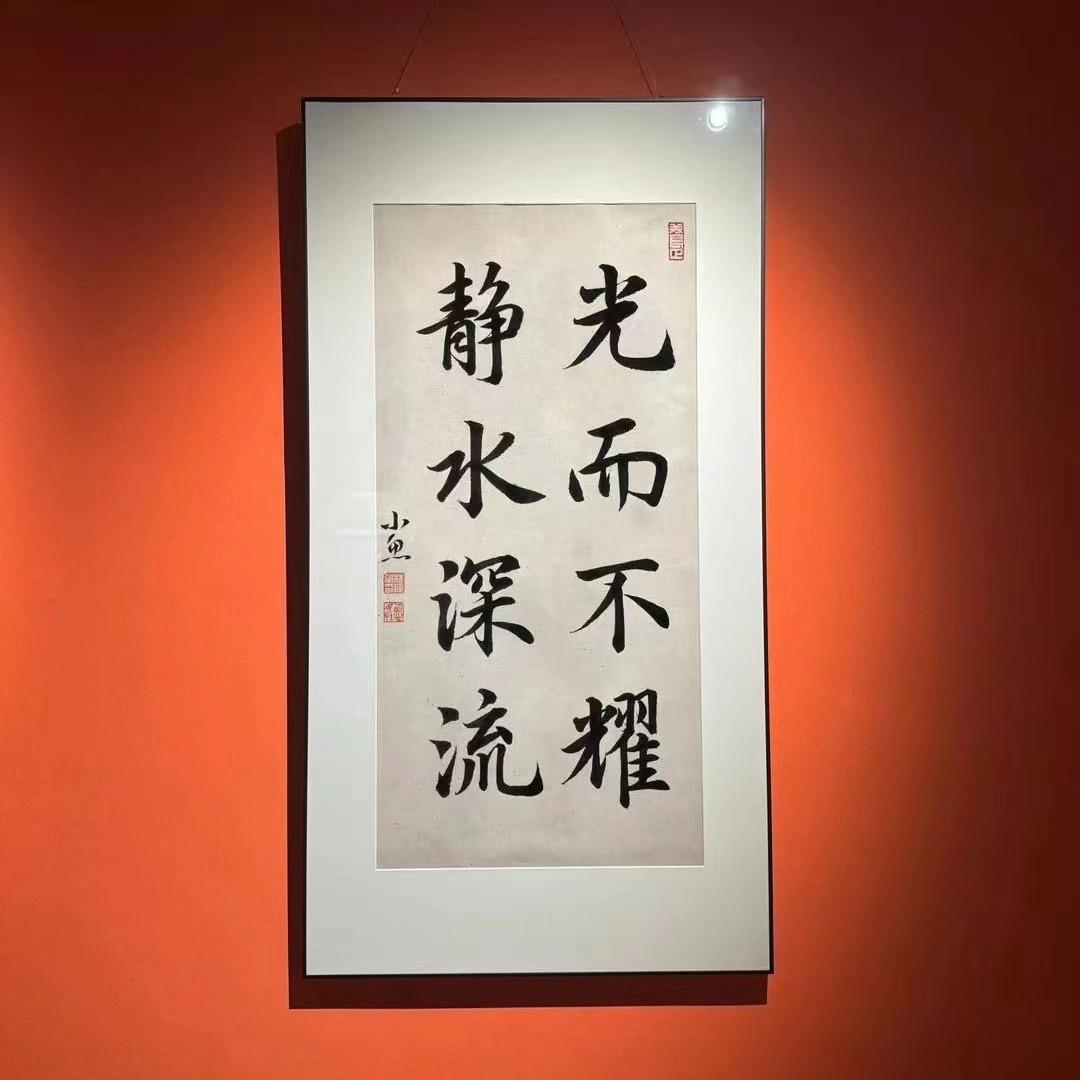 光而不耀
静水深流
小鱼